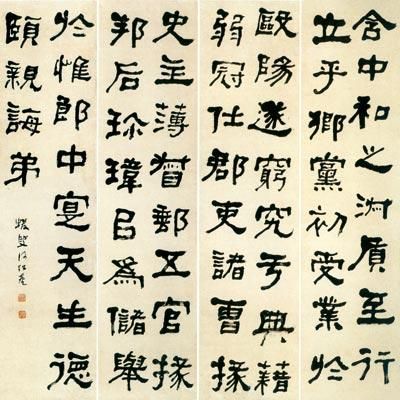 含中和之淑質至行
立乎鄉黨初受業於
歐陽遂窮究于典藉
弱冠仕郡吏諸曹掾
史主薄督郵五官掾
邦后珍瑋㠯為儲舉
於惟郎中寔天生德
頤親誨弟
蝯叟何紹基